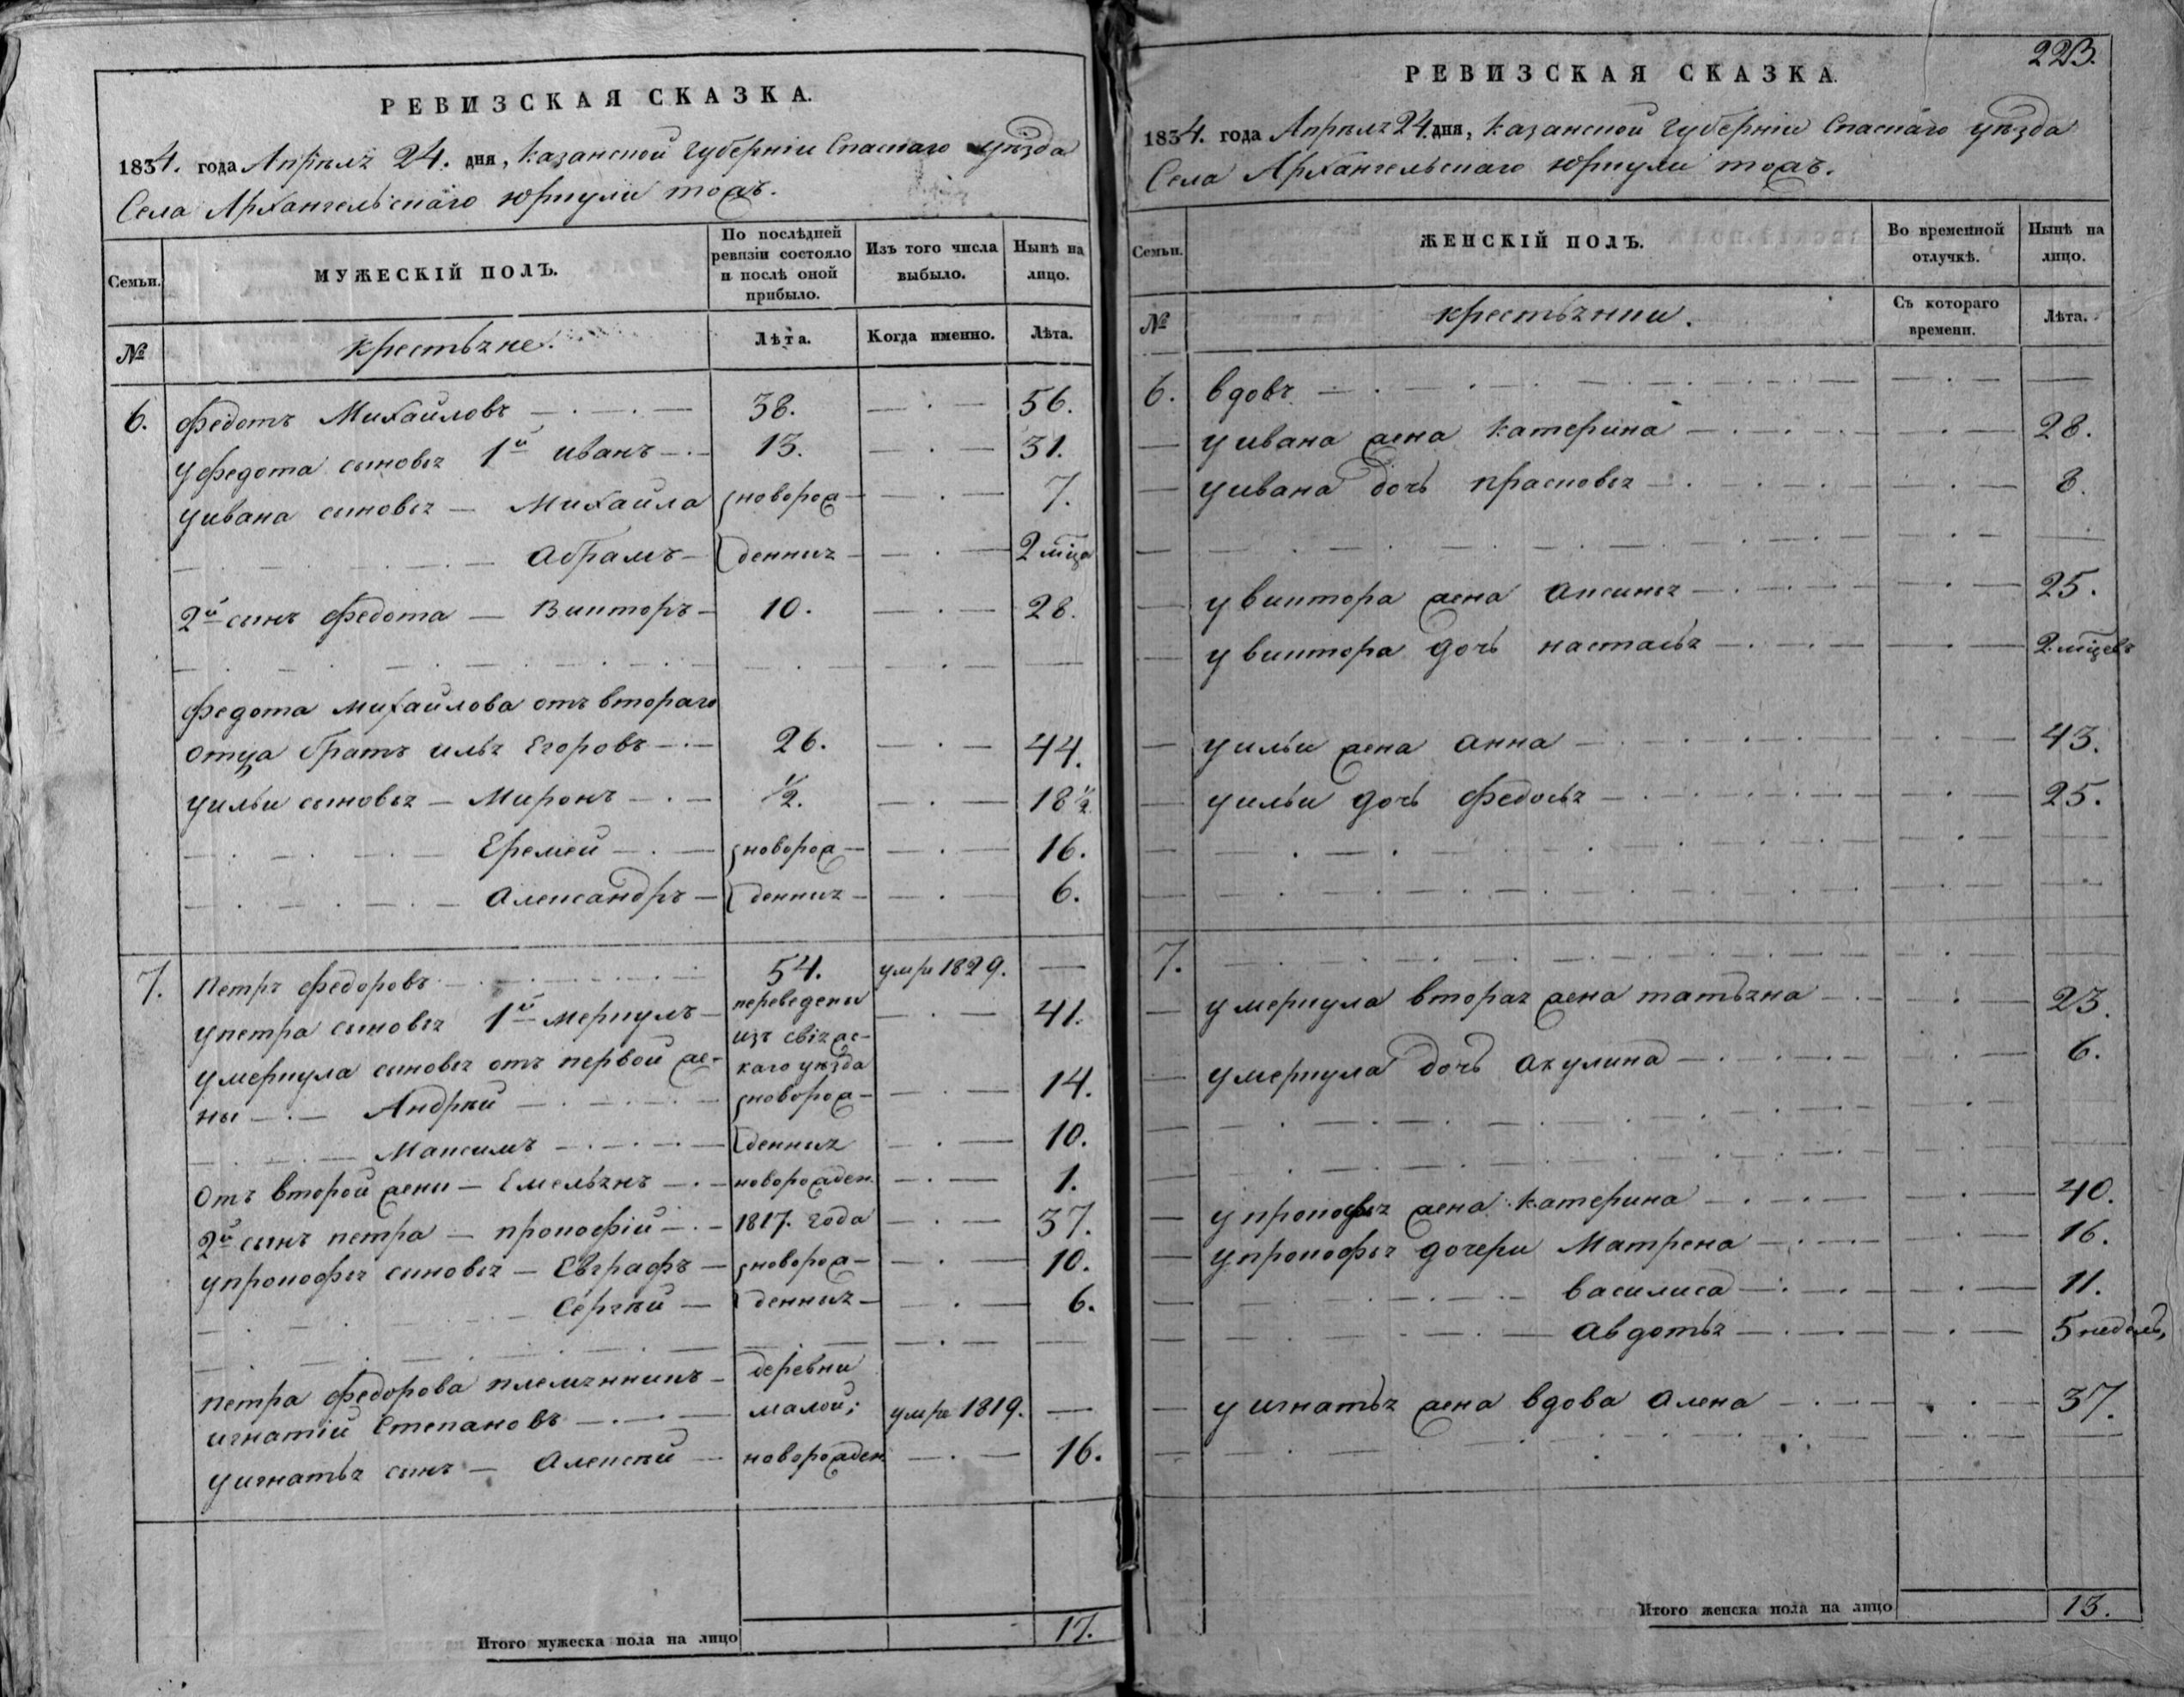 РЕВИЗСКАЯ СКАЗКА.
1834. года Апрѣля 24. дня, Казанской Губерніи Спаскаго уѣзда
Села Архангельскаго Юркули тожъ.
Семьи.
МУЖЕСКІЙ ПОЛЪ.
По послѣдней ревизіи состояло и послѣ оной прибыло.
Изъ того числа выбыло.
Нынѣ на лицо.
№
Крестьяне.
Лѣта.
Когда именно.
Лѣта.
6. Федотъ Михайловъ 38. 56.
у Федота сыновья 1й Иванъ 13. 31.
у Ивана сыновья Михайла новорож- 7.
Абрамъ денныя 2 мѣца
2й сынъ Федота Викторъ 10. 28.
Федота Михайлова отъ втораго
отца братъ Илья Егоровъ 26. 44.
у Ильи сыновья Миронъ 1/2. 18 1/2
Еремей новорож- 16.
Александръ денныя 6.
7. Петръ Федоровъ 54. умре 1829.
у Петра сыновья 1й Меркулъ переведены 41.
изъ свіяж-
у Меркула сыновья отъ первой же- каго уѣзда
ны Андрѣй новорож- 14.
Максимъ денныя 10.
Отъ второй жены Емельянъ новорожден 1.
2й сынъ Петра Прокофій 1817. года 37.
у Прокофья сыновья Евграфъ новорож- 10.
Сергѣй денныя 6.
Петра Федорова племянникъ деревни
Игнатій Степановъ малой; умре 1819.
у Игнатья сынъ Алексѣй новорожден 16.
Итого мужеска пола на лицо 17.
223.
РЕВИЗСКАЯ СКАЗКА.
1834. года Апрѣля 24. дня, Казанской Губерніи Спаскаго уѣзда
Села Архангельскаго Юркули тожъ.
Семьи.
ЖЕНСКІЙ ПОЛЪ.
Во временной отлучкѣ.
Нынѣ на лицо.
№
Крестьянки.
Съ котораго времени.
Лѣта.
6. вдовъ
у Ивана жена Катерина 28.
у Ивана дочь Прасковья 8.
у Виктора жена Аксинья 25.
у Виктора дочь Настасья 2 мѣцевъ
у Ильи жена Анна 43.
у Ильи дочь Федосья 25.
7.
у Меркула вторая жена Татьяна 23.
у Меркула дочь Акулина 6.
у Прокофья жена Катерина 40.
у Прокофья дочери Матрена 16.
Василиса 11.
Авдотья 5 недель,
у Игнатья жена вдова Алена 37.
Итого женска пола на лицо 13.